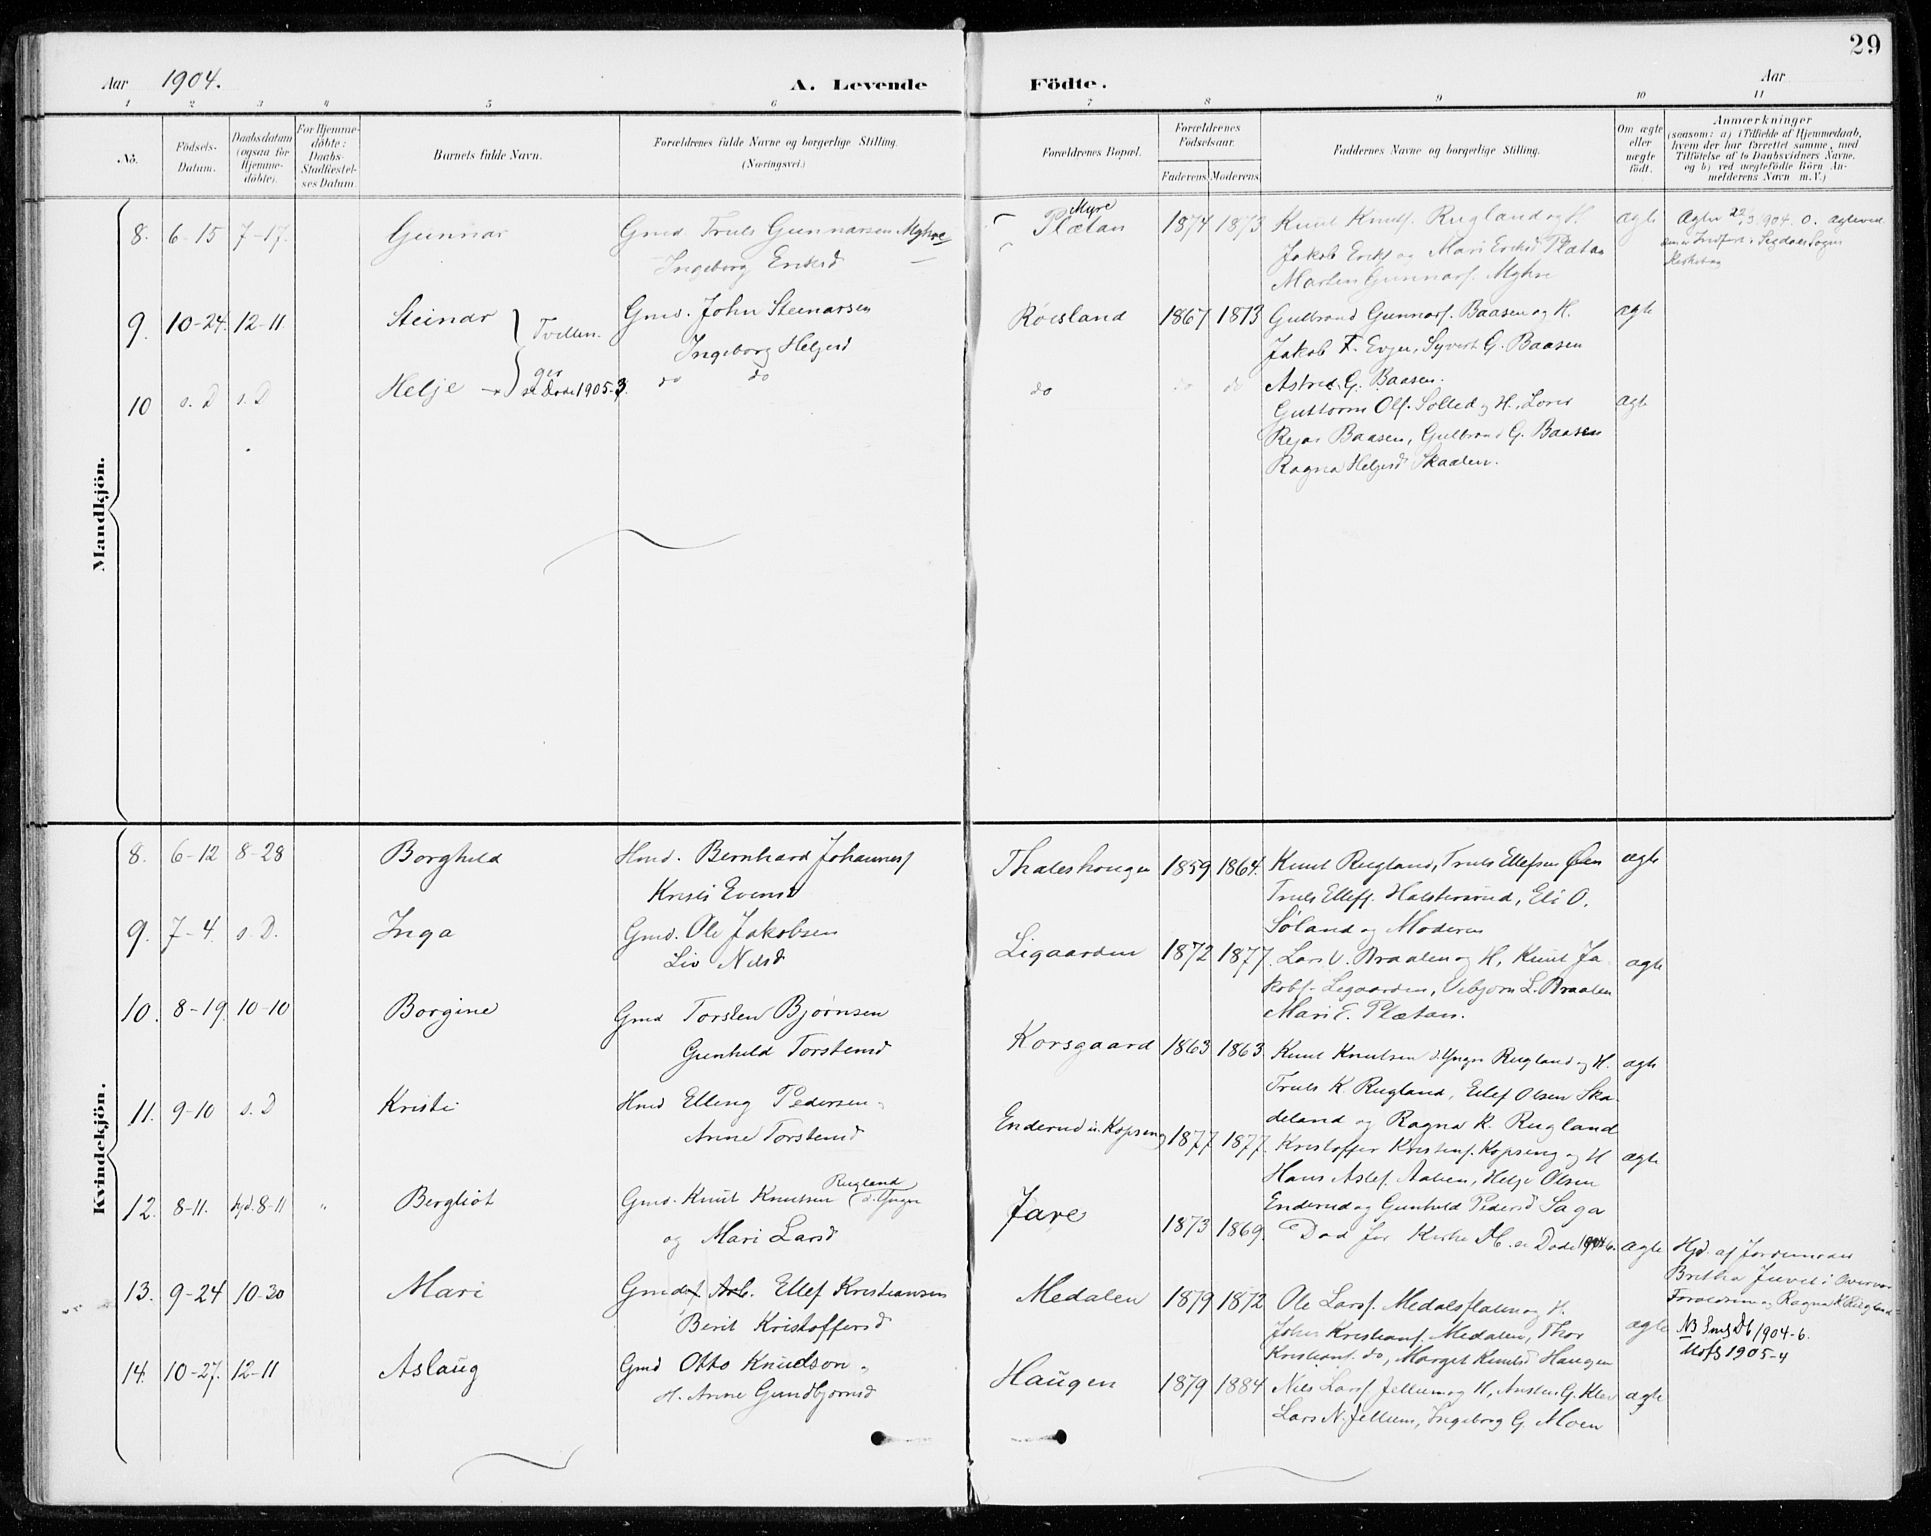 29
Aar 1904.
A. Levende
Födte.
Aar
1 2 3 4 5 6 7 8 9 10 11
No.
Födsels-Datum.
Daabsdatum (ogsaa for Hjemme-döbte).
For Hjemme-döbte: Daabs-Stadfæstel-ses Datum
Barnets fulde Navn.
Forældrenes fulde Navne og borgerlige Stilling.
(Næringsvei.)
Forældrenes Bopæl.
Forældrenes Födselsaar.
Faderens. Moderens.
Faddernes Navne og borgerlige Stilling.
Om ægte eller uægte födt.
Anmærkninger
(saasom: a) i Tilfælde af Hjemmedaab, hvem der har forrettet samme, med Tilföielse af to Daabsvidners Navne, og b) ved uægtefödte Börn An-melderens Navn m. V.)
Mandkjön.
8. 6-15 7-17. Gunnar Gmd. Truls Gunnarsen Myhre
Ingeborg Eriksd
Myre
Plætan 1874 1873 Knut Knuts. Rugland og H. ægte
Jakob Eriks og Mari Eriksd Plætan
Marten Gunnars. Myhre
9. 10-24. 12-11. Steinar Tvillin- Gmd. John Steinarsen
Ingeborg Heljesd
Röisland 1867 1873 Gulbrand Gunnars. Baasen og H. ægte
Jakob T. Evjen, Syvert G. Baasen
Astrid. G. Baasen.
10 s. D s. D Helje ger se Døde 1905-3. do do
do do do Guttorm Ols. Solled og H., Lovis ægte
Baasen, Gulbrand G. Baasen
Ragna Helgesd Skaalen.
Kvindekjön.
8. 6-12 8-28 Borghild Hmd. Bernhard Johannes
Kristi Evensd
1859 1864. Knut Rugland, Truls Ellefsen Øen ægte
Truls Ellefs. Halstensrud, Eli O.
Søland og Moderen
9. 7-4. s. D. Inga Gmd. Ole Jakobsen
Liv Nilsd
Ligaarden 1872 1877. Lars V. Braalen og H, Knut Ja- ægte
kobs. Ligaarden, Vebjørn L. Braalen
Mari E. Plætan.
10. 8-19. 10-10 Borgine Gmd Torsten Bjørnsen
Gunhild Torstensd
Korsgaard 1863 1863 Knut Knutsen d. Yngre Rugland og H. ægte
Truls K. Rugland, Eilef Olsen Ska-
deland og Ragna K. Rugland
11. 9-10 s. D Kristi Hmd Elling Pedersen
Anne Torstensd
Enderud u. Kopseng 1877 1877. Kristoffer Kristens. Kopseng og H ægte
Hans Aslef. Aaben, Helje Olsen
Enderud og Gunhild Pedersd Saga
12. 8-11. hjd. 8-11 " Bergliot Gmd. Knut Knutsen Rugland d. Yngre
og Mari Larsd
Jare 1873 1869. Død før Kirke D. se Døde 1904-6. ægte
Hjd. af Jordemoder
Britha Juvel i Overvær
Forældrene og Ragna K. Rugland
13. 9-24 10-30 Mari Gmdsf. Arb. Ellef Kristiansen
Berit Kristoffersd
Medalen 1879 1872 Ole Lars. Medalsflaten og H. ægte
John Kristians. Medalen, Thor
Kristians. do, Marget Knutsd Haugen
NB Db 1904-6.
1905-4
14. 10-27. 12-11 Aslaug Gmd Otto Knudson
H. Anne Gundbjørnsd
Haugen 1879 1884 Nils Lars. Jellum og H, Austen G. Klev ægte
Lars N. Jellum, Ingeborg G. Moen